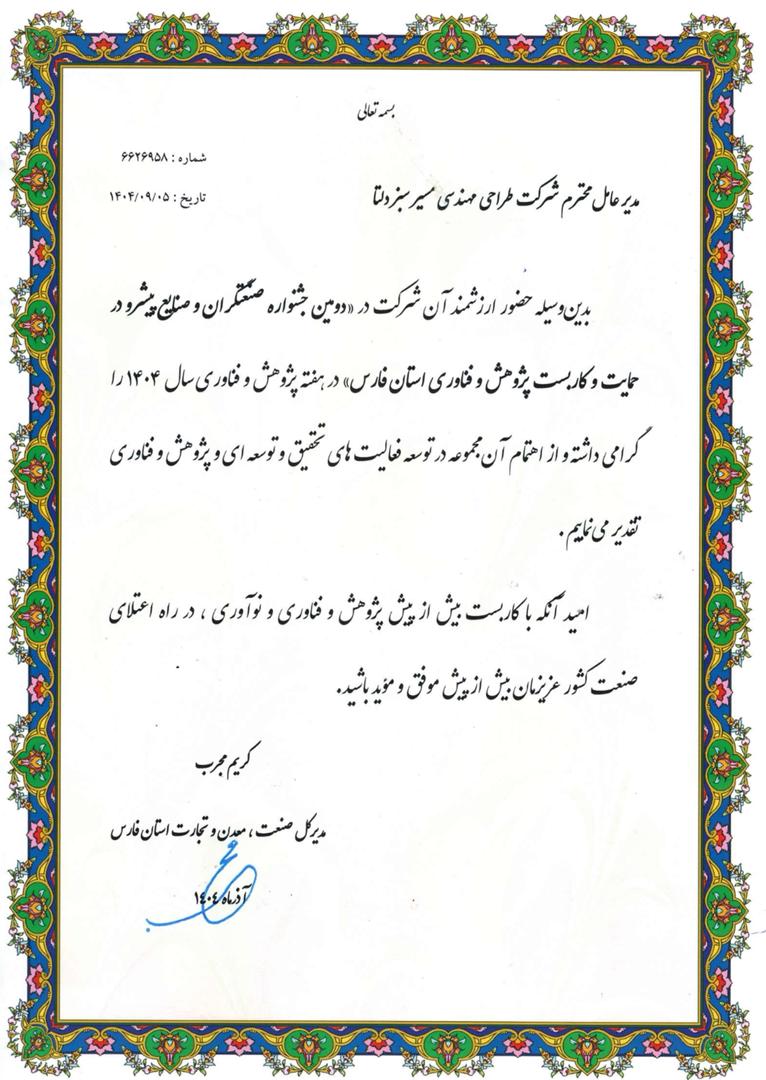 بسمه تعالی
شماره : ۶۶۲۶۹۵۸
تاریخ : ۱۴۰۴/۰۹/۰۵
مدیر عامل محترم شرکت طراحی مهندسی مسیر سبز دلتا
بدین‌وسیله حضور ارزشمند آن شرکت در «دومین جشنواره صنعتگران و صنایع پیشرو در
حمایت و کاربست پژوهش و فناوری استان فارس» در هفته پژوهش و فناوری سال ۱۴۰۴ را
گرامی داشته و از اهتمام آن مجموعه در توسعه فعالیت های تحقیق و توسعه ای و پژوهش و فناوری
تقدیر می‌نماییم.
امید آنکه با کاربست بیش از پیش پژوهش و فناوری و نوآوری ، در راه اعتلای
صنعت کشور عزیزمان بیش از پیش موفق و مؤید باشید.
کریم مجرب
مدیرکل صنعت ، معدن و تجارت استان فارس
آذرماه ۱۴۰۴